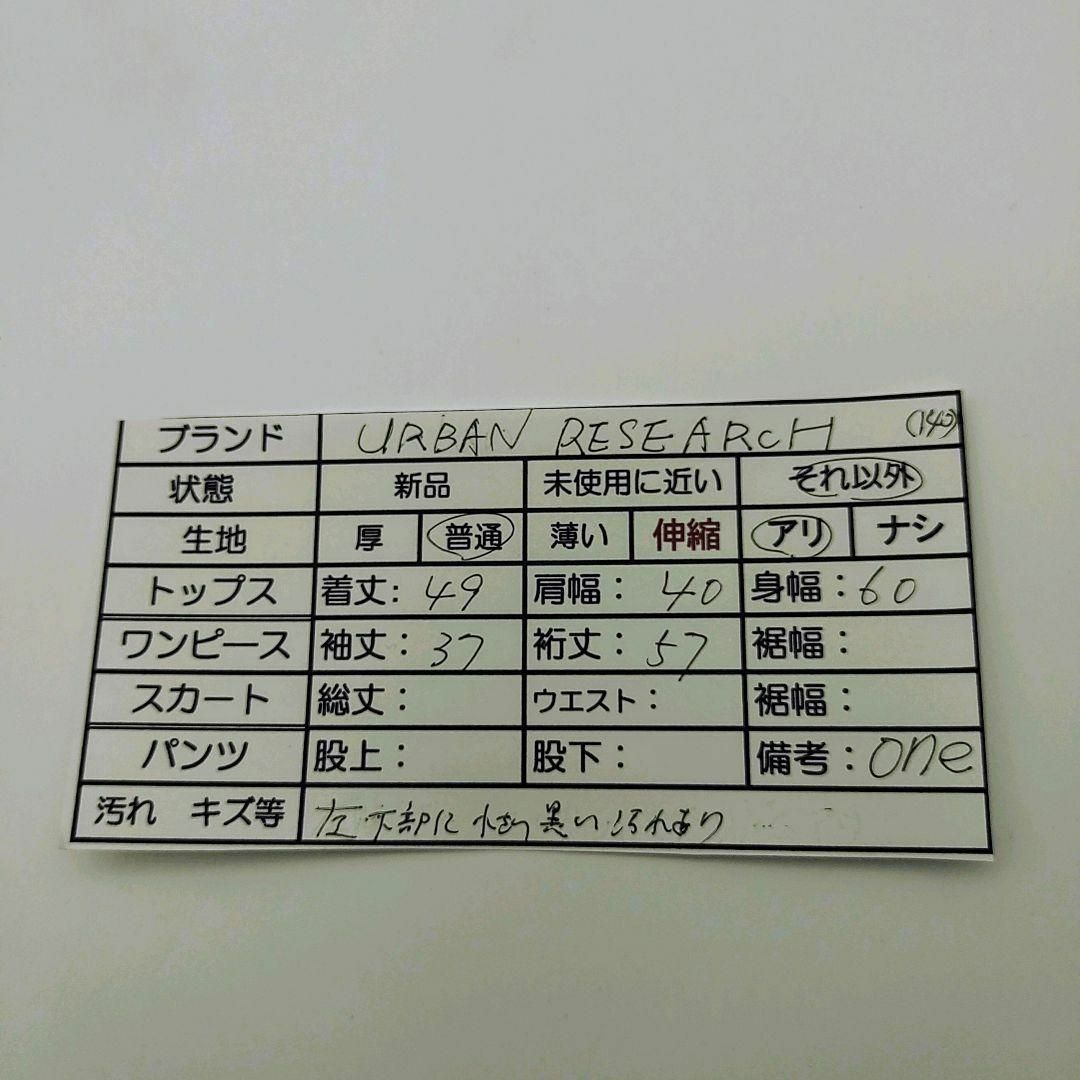 ブランド URBAN RESEARCH (140)
状態 新品 未使用に近い それ以外
生地 厚 普通 薄い 伸縮 アリ ナシ
トップス 着丈: 49 肩幅: 40 身幅: 60
ワンピース 袖丈: 37 裄丈: 57 裾幅:
スカート 総丈: ウエスト: 裾幅:
パンツ 股上: 股下: 備考: one
汚れ キズ等 左下部に 小さい 黒い 汚れあり